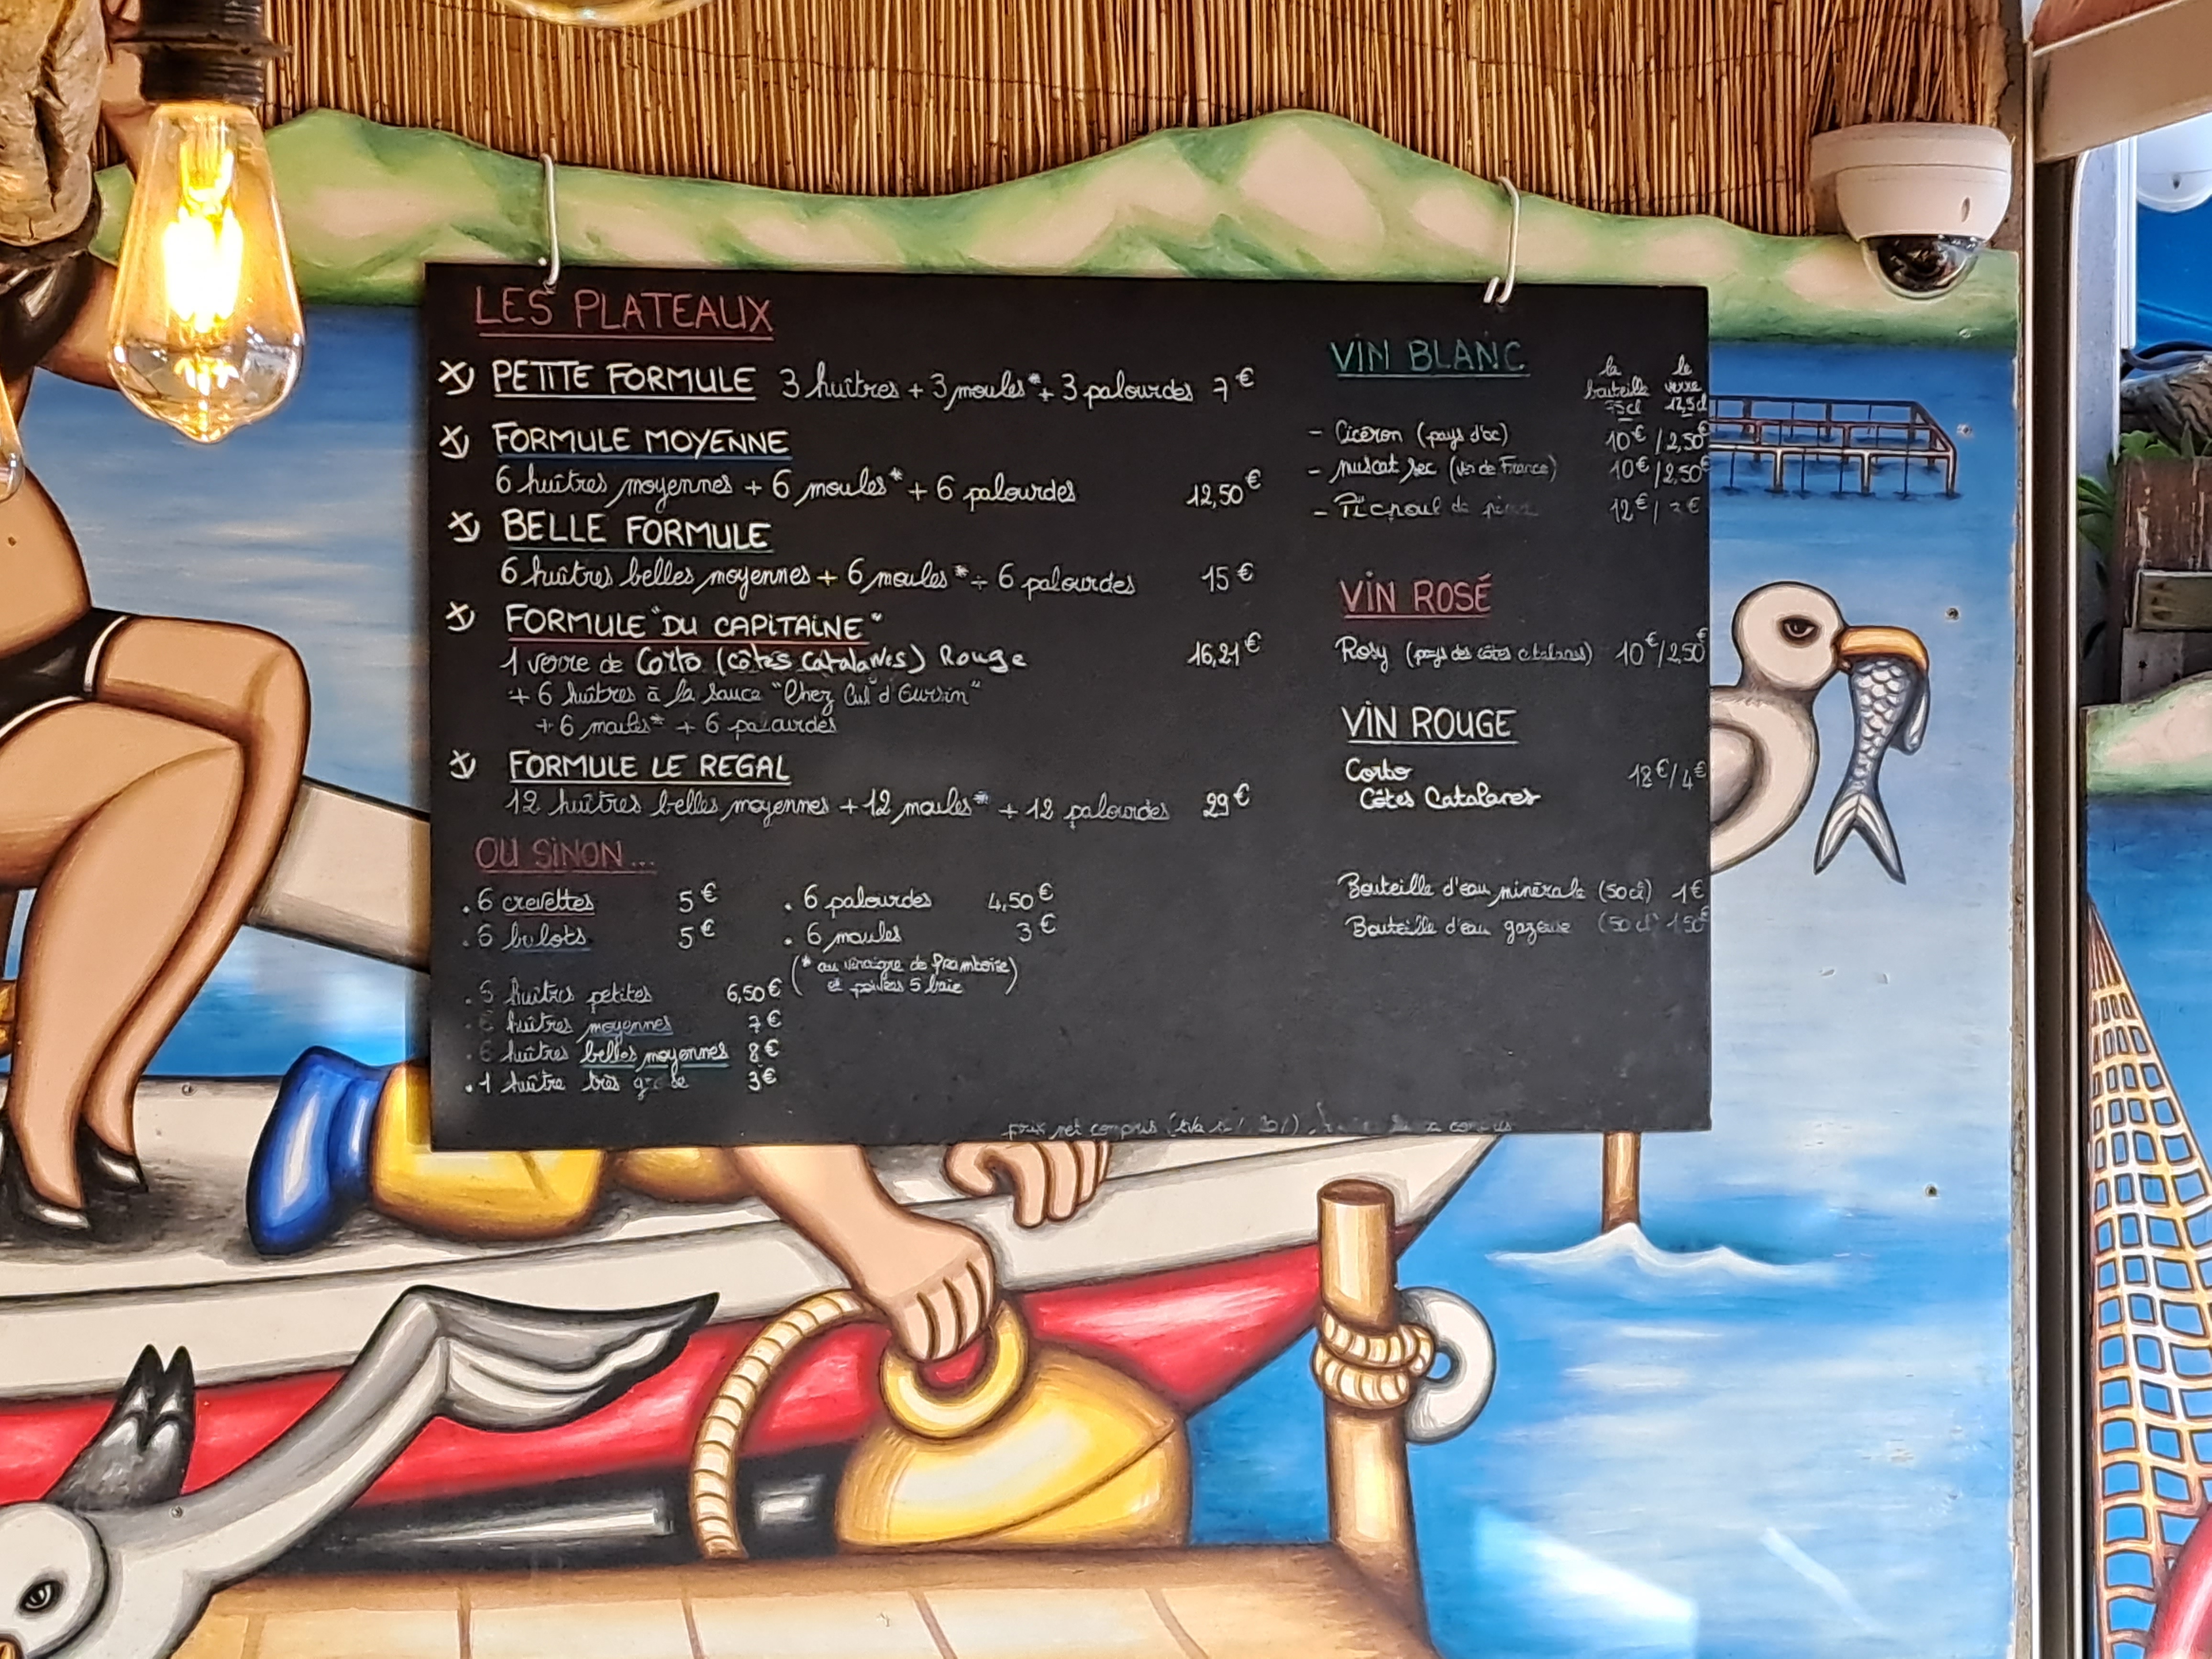 LES PLATEAUX
PETITE FORMULE 3 huîtres + 3 moules* + 3 palourdes 7€
FORMULE MOYENNE
6 huîtres moyennes + 6 moules* + 6 palourdes 12,50€
BELLE FORMULE
6 huîtres belles moyennes + 6 moules* + 6 palourdes 15€
FORMULE "DU CAPITAINE"
1 verre de Corto (côtes Catalanes) Rouge 16,21€
+ 6 huîtres à la sauce "Chez Cul d'Oursin"
+ 6 moules* + 6 palourdes
FORMULE LE REGAL
12 huîtres belles moyennes + 12 moules* + 12 palourdes 29€
OU SINON...
. 6 crevettes 5€
. 6 bulots 5€
. 6 huîtres petites 6,50€
. 6 huîtres moyennes 7€
. 6 huîtres belles moyennes 8€
. 1 huître très 3€
. 6 palourdes 4,50€
. 6 moules 3€
(* au vinaigre de framboise
et poivres 5 baie)
VIN BLANC
la bouteille 75cl
le verre 12,5cl
- Cicéron (pays d'oc) 10€ / 2,50€
- muscat sec (vin de France) 10€ / 2,50€
- Picpoul de 12€ /
VIN ROSÉ
Rosy (pays des côtes catalanes) 10€/2,50€
VIN ROUGE
Corto 18€/4€
Côtes Catalanes
Bouteille d'eau minérale (50cl) 1€
Bouteille d'eau gazeuse (50cl) 1,50€
prix net